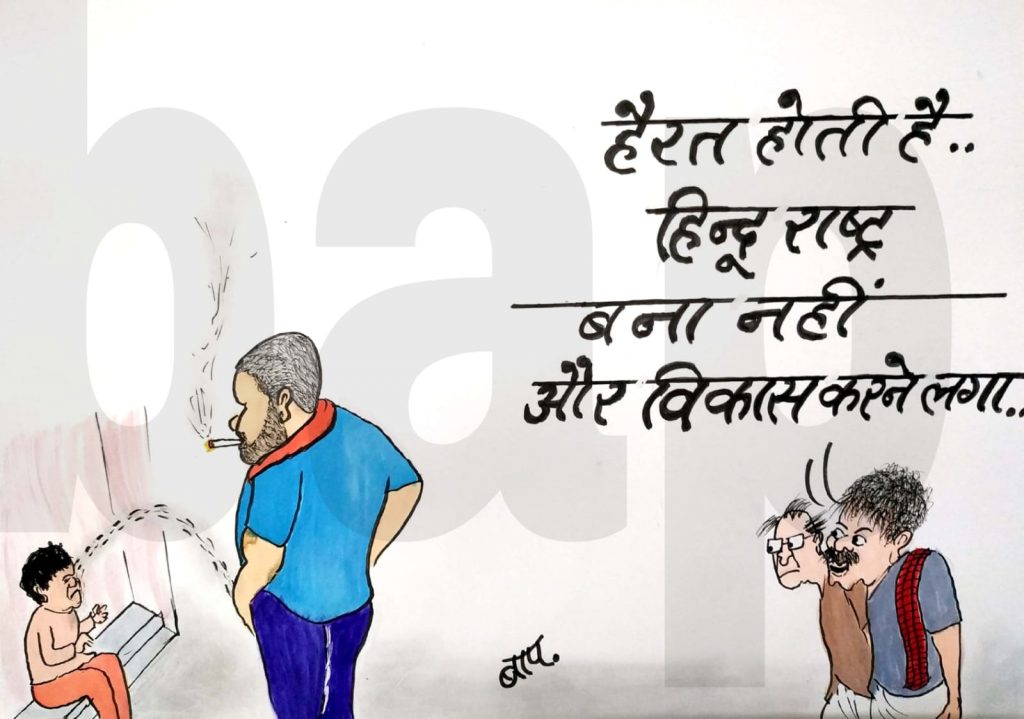 हैरत होती है..
हिन्दू राष्ट्र
बना नहीं
और विकास करने लगा..
बाप.
bap